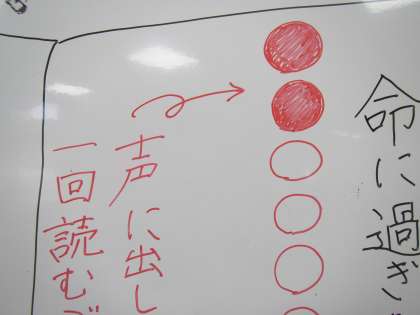 命に過ぎ
声に出し
一回読む